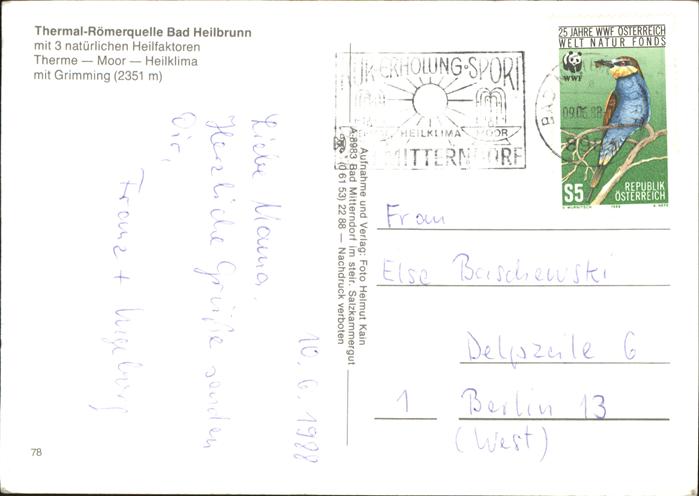 Thermal-Römerquelle Bad Heilbrunn
mit 3 natürlichen Heilfaktoren
Therme — Moor — Heilklima
mit Grimming (2351 m)
25 JAHRE WWF ÖSTERREICH
WELT NATUR FONDS
WWF
S5
REPUBLIK
ÖSTERREICH
1988
KUR·ERHOLUNG·SPORT
HEILKLIMA
MOOR
MITTERNDORF
BAD
09.06.88
8983
10. 6. 1988
Liebe Mama,
Herzliche Grüße senden
Dir,
Franz +
Aufnahme und Verlag: Foto Helmut Kain
A-8983 Bad Mitterndorf im steir. Salzkammergut
(0 61 53) 22 88 — Nachdruck verboten
Frau
Else Baschewski
Delpzeile 6
1 Berlin 13
(West)
78